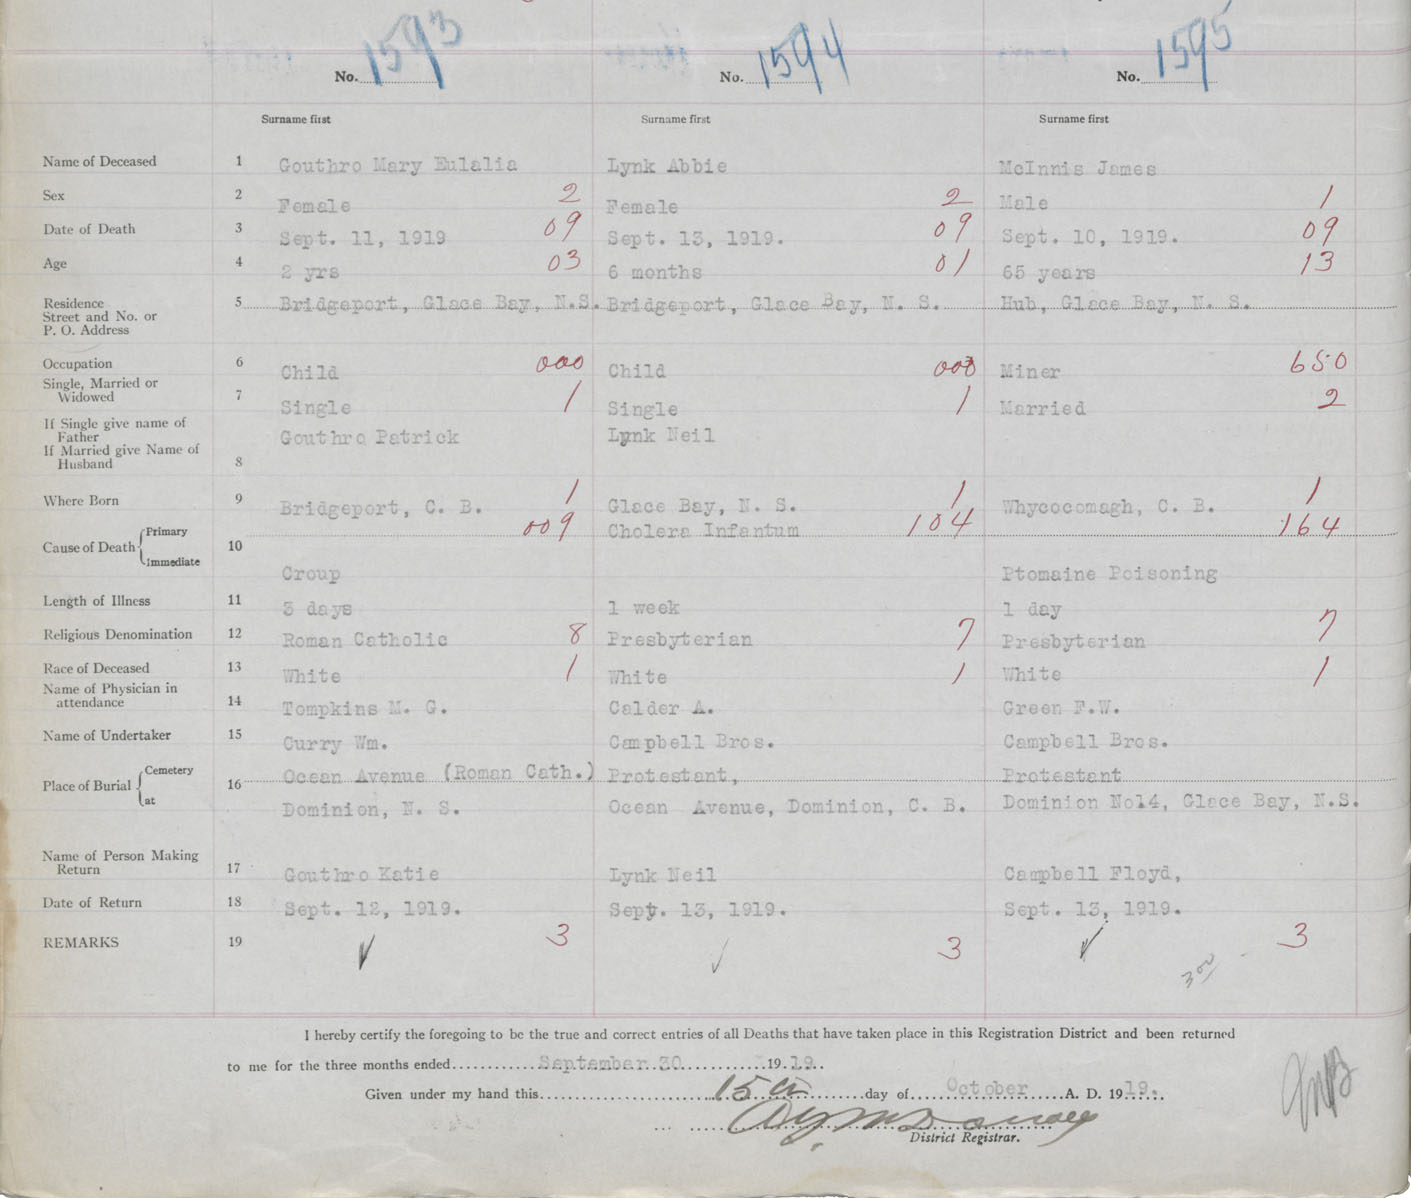 No. 1593 No. 1594 No. 1595
Surname first Surname first Surname first
Name of Deceased 1 Gouthro Mary Eulalia Lynk Abbie McInnis James
Sex 2 Female 2 Female 2 Male 1
Date of Death 3 Sept. 11, 1919 09 Sept. 13, 1919. 09 Sept. 10, 1919. 09
Age 4 2 yrs 03 6 months 01 65 years 13
Residence 5 Bridgeport, Glace Bay, N.S. Bridgeport, Glace Bay, N. S. Hub, Glace Bay, N. S.
Street and No. or
P. O. Address
Occupation 6 Child 000 Child 000 Miner 650
Single, Married or
Widowed 7 Single 1 Single 1 Married 2
If Single give name of
Father Gouthro Patrick Lynk Neil
If Married give Name of
Husband 8
Where Born 9 Bridgeport, C. B. 1 Glace Bay, N. S. 1 Whycocomagh, C. B. 1
Primary 009 Cholera Infantum 104 164
Cause of Death 10
Immediate Croup Ptomaine Poisoning
Length of Illness 11 3 days 1 week 1 day
Religious Denomination 12 Roman Catholic 8 Presbyterian 7 Presbyterian 7
Race of Deceased 13 White 1 White 1 White 1
Name of Physician in
attendance 14 Tompkins M. G. Calder A. Green F.W.
Name of Undertaker 15 Curry Wm. Campbell Bros. Campbell Bros.
Cemetery Ocean Avenue (Roman Cath.) Protestant, Protestant
Place of Burial 16
at Dominion, N. S. Ocean Avenue, Dominion, C. B. Dominion No14, Glace Bay, N.S.
Name of Person Making
Return 17 Gouthro Katie Lynk Neil Campbell Floyd,
Date of Return 18 Sept. 12, 1919. Sept. 13, 1919. Sept. 13, 1919.
REMARKS 19 3 3 3
I hereby certify the foregoing to be the true and correct entries of all Deaths that have taken place in this Registration District and been returned
to me for the three months ended September 30 1919.
Given under my hand this 15th day of October A. D. 1919.
District Registrar.